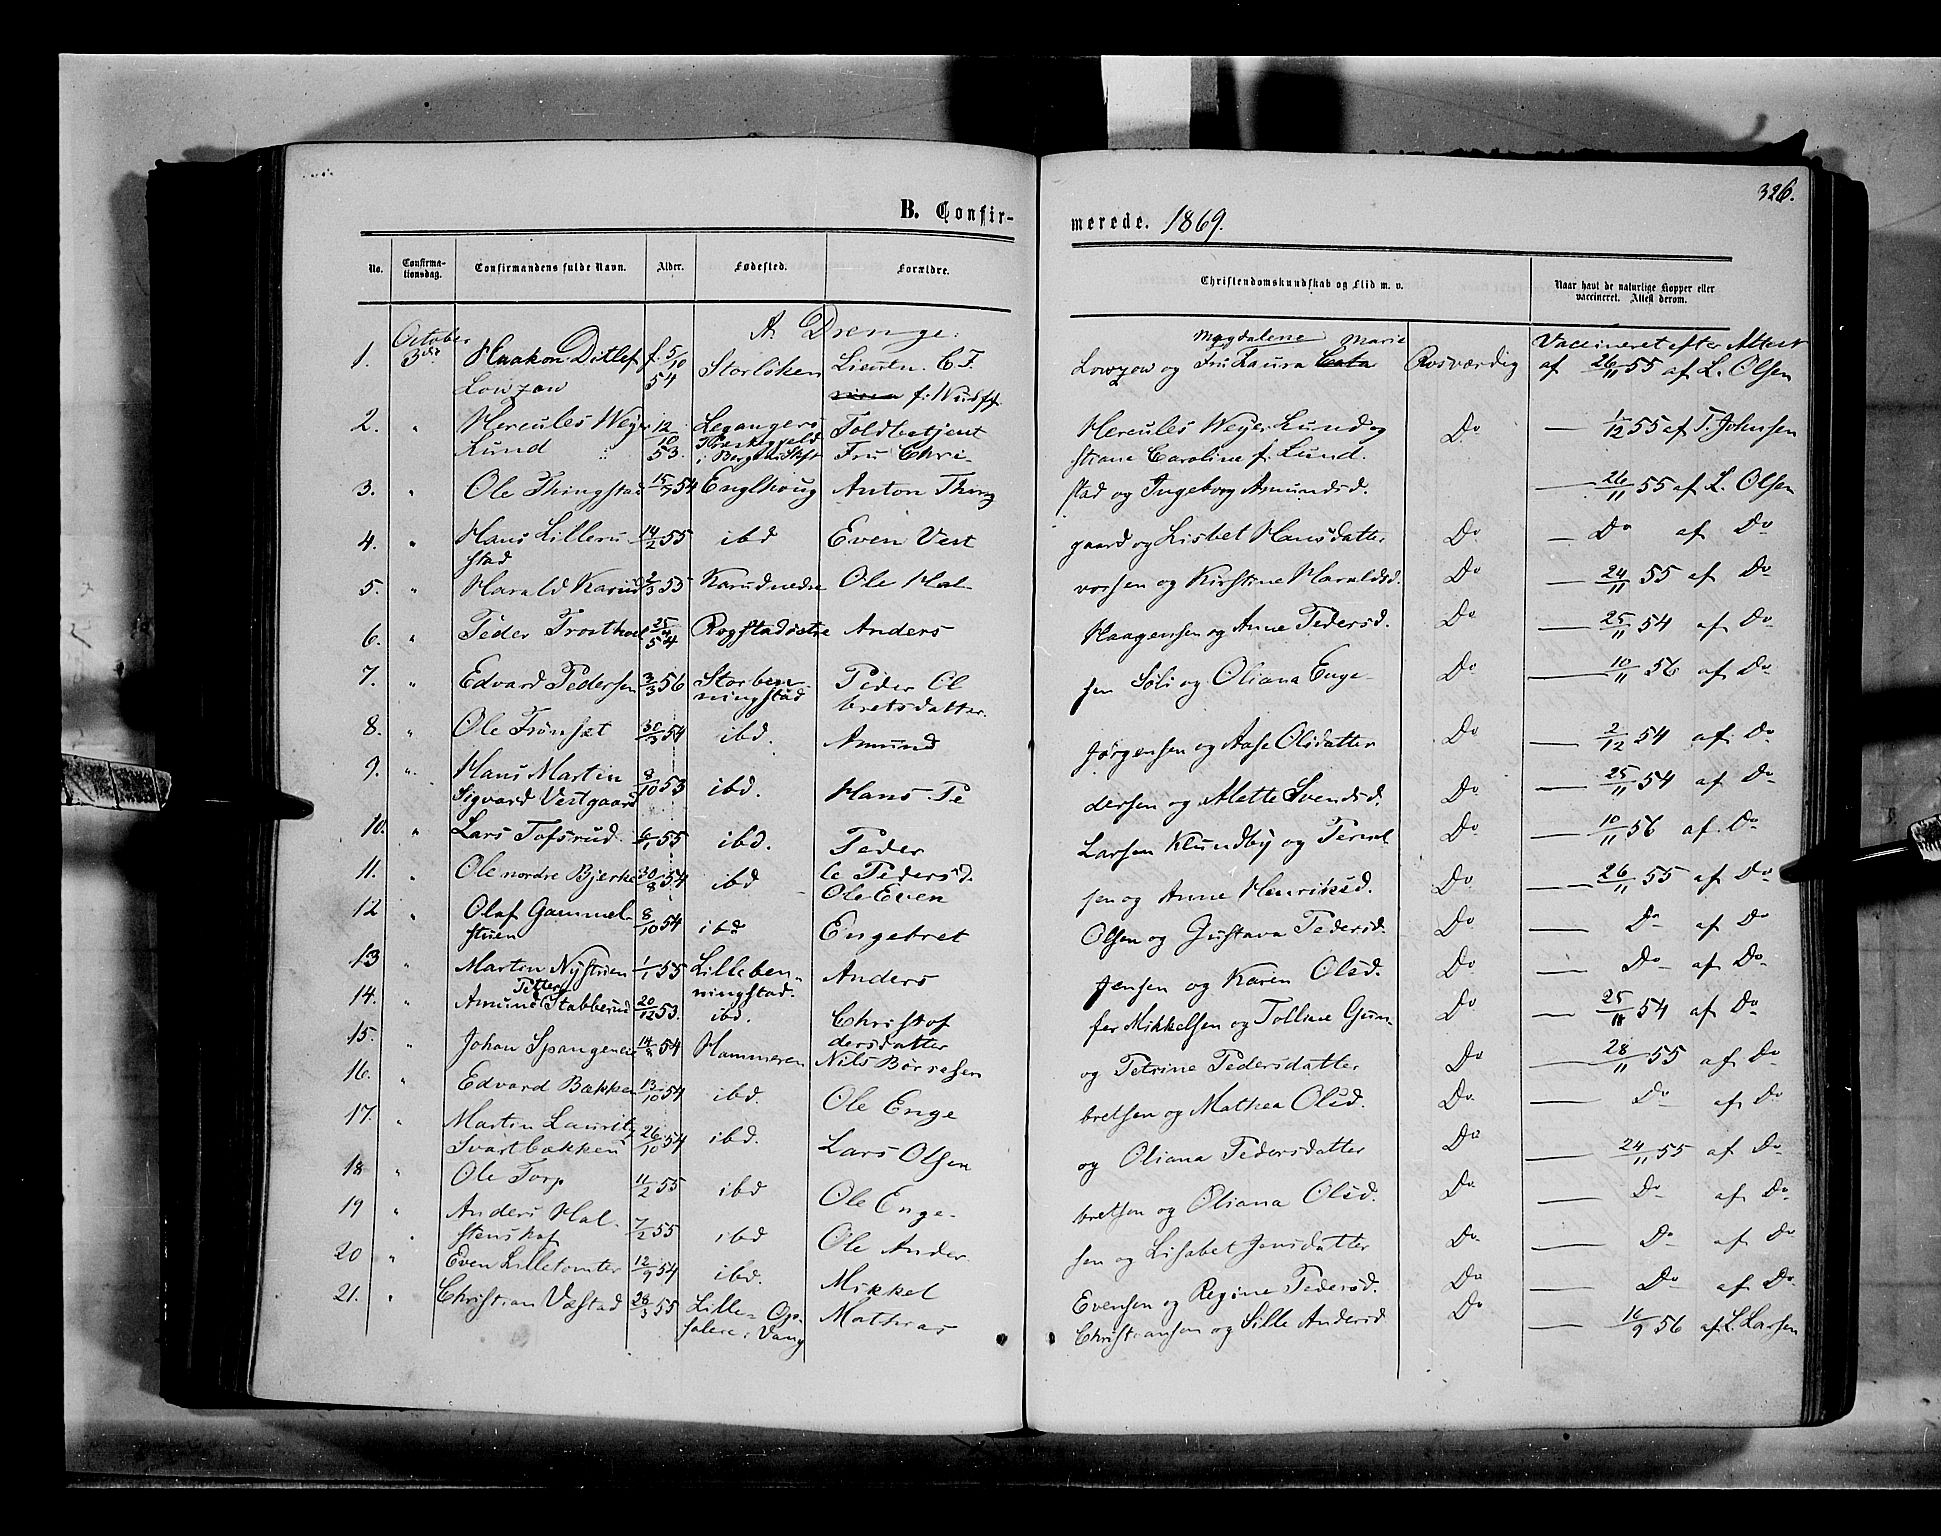 326.
B. Confir-
merede. 1869.
No.
Confirma-
tionsdag.
Confirmandens fulde Navn.
Alder.
Fødested.
Forældre.
Christendomskundskab og Flid m. v.
Naar havt de naturlige Kopper eller
vaccineret. Attest derom.
A. Drenge.
Magdalene Marie
Vaccineret efter Attest
1. October 3die Haakon Ditlef f. 5/10 Storløken Lieutn. C. F. Lowzow og Fru Laura Rosværdig af 26/11 55 af L. Olsen
Lowzow 54
2. " Hercules Weyer 12/10 Legangers Toldbetjent Hercules Weyer Lund og Do — 1/12 55 af T. Johnsen
Lund 53. Præstegjeld Fru Chri- stiane Caroline f. Lund.
i Bergens Stift
3. " Ole Thingstad 15/9 54 Englhoug Anton Thing stad og Ingeborg Amundsd. — 26/11 55 af L. Olsen
4. " Hans Lilleru 14/2 55 ibd Even Vest gaard og Lisbet Hansdatter Do — Do af Do
stad
5. " Harald Karud 2/3 55 Karudnedre Ole Hal- vorsen og Kirstine Haraldsd. Do — 24/11 55 af Do
6. " Peder Frosthoel 25/4 54 Rogstadøstre Anders Haagensen og Anne Pedersd. Do — 25/11 54 af Do
7. " Edvard Pedersen 3/3 56 Storben- Peder Ol sen Søli og Oliana Enge- Do — 10/11 56 af Do
ningstad bretsdatter.
8. " Ole Trønsæt 30/3 54 ibd. Amund Jørgensen og Aase Olsdatter Do — 2/12 54 af Do
9. " Hans Martin 8/10 53 ibd. Hans Pe dersen og Alette Svendsd. Do — 25/11 54 af Do
Sigvard Vestgaard
10. " Lars Tofsrud 6/1 55 ibd. Peder Larsen Klundby og Pernel Do — 10/11 56 af Do
11. " Ole nordre Bjerke 30/8 54 ibd le Pedersd.
Ole Even sen og Anne Henriksd. Do — 26/11 55 af Do
12 " Olaf Gammel- 8/10 54 ibd Engebret Olsen og Gustava Pedersd. Do — Do af Do
stuen
13 " Martin Nystuen 1/1 55 Lilleben- Anders Jensen og Karen Olsd. Do — Do af Do
ningstad.
Petter
14. " Amund Stabberud 20/12 53. ibd. Christof fer Mikkelsen og Polline Gun- Do — 25/11 54 af Do
dersdatter
15. " Johan Spangenes 14/8 54 Hammeren Nils Børresen og Petrine Pedersdatter Do — 28/11 55 af Do
16. " Edvard Bækken 13/10 54 ibd. Ole Enge bretsen og Mathea Olsd. Do — Do af Do
17. " Martin Lauritz 26/10 54 ibd. Lars Olsen og Oliana Pedersdatter Do — 24/11 55 af Do
Svartbækken
18 " Ole Torp 11/2 55 ibd Ole Enge- bretsen og Oliana Olsd. Do — Do af Do
19 " Anders Hal- 7/2 55 ibd Ole Ander sen og Lisabet Jensdatter Do — Do af Do
stenshof
20 " Even Lilletomter 12/9 54 ibd. Mikkel Evensen og Regine Pedersd. Do — Do af Do
21. " Christian Væstad 28/3 55 Lille-Op- Mathias Christiansen og Sille Andersd Do — 16/9 56 af L. Larsen
salere i Vang